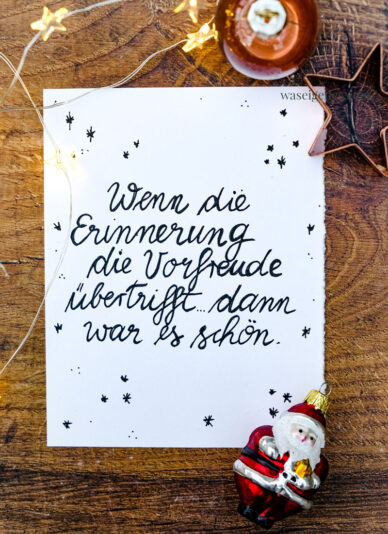 Wenn die
Erinnerung
die Vorfreude
übertrifft... dann
war es schön.